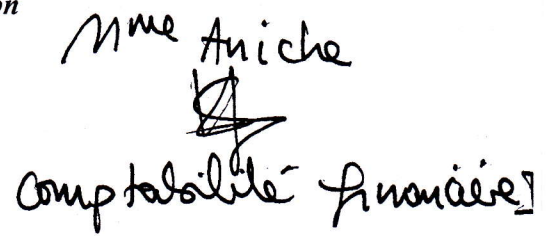 on
Mme Aniche
comptabilité financière